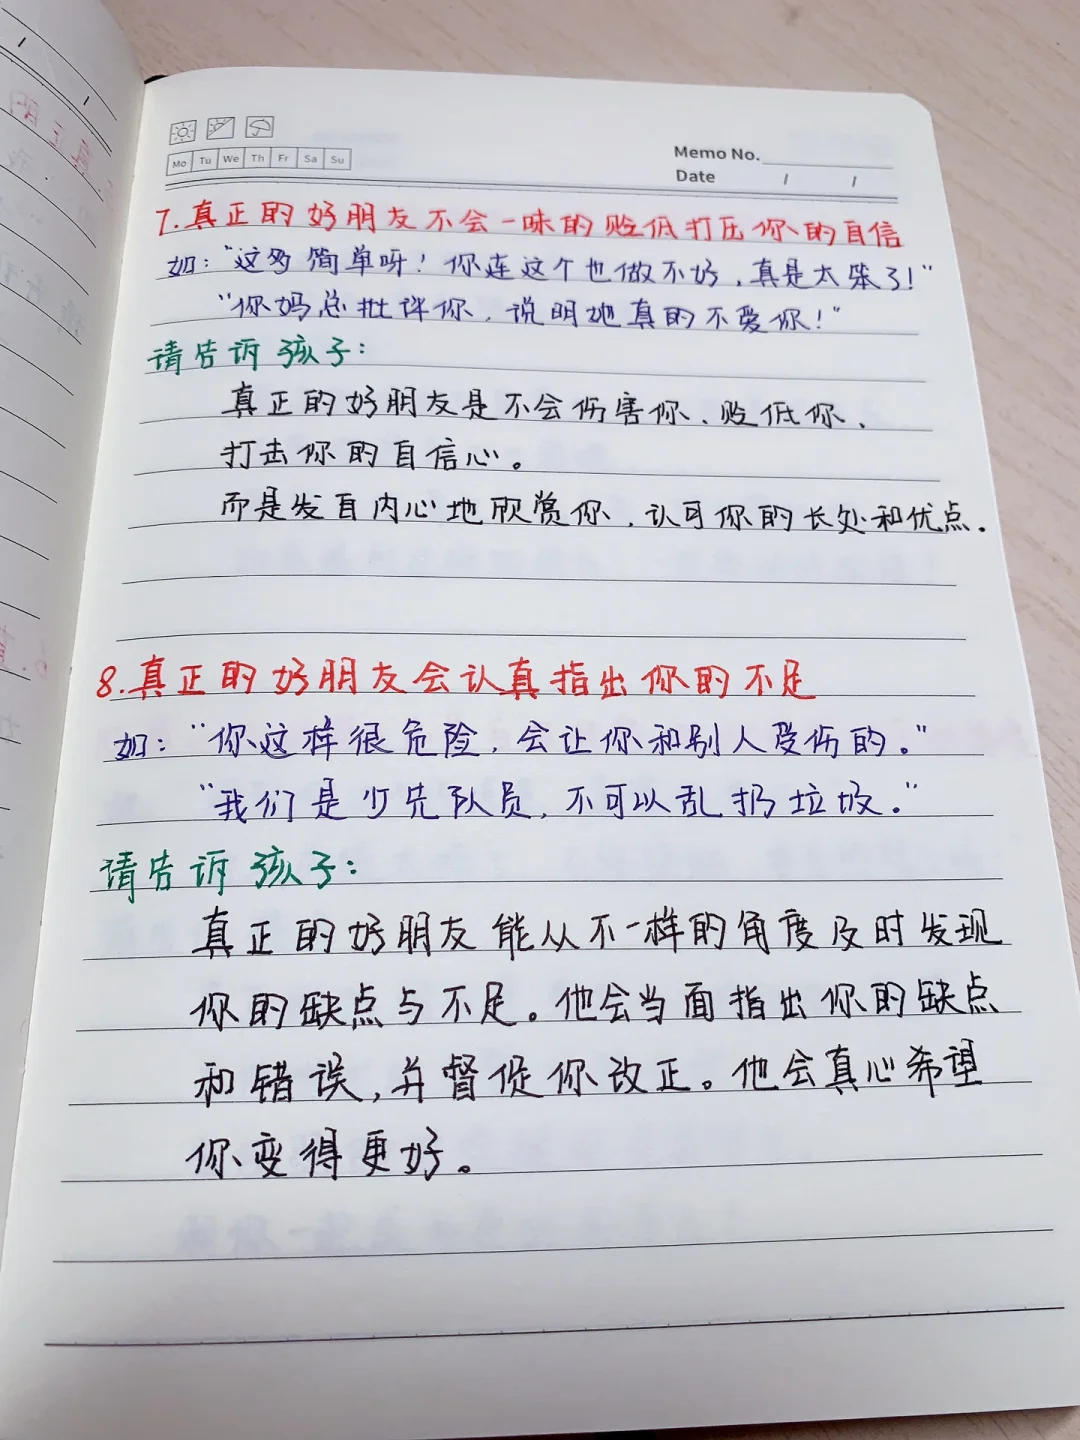 Mo Tu We Th Fr Sa Su
Memo No.
Date / /
7.真正的好朋友不会一味的贬低打压你的自信
如:“这多简单呀!你连这个也做不好,真是太笨了!”
“你妈总批评你,说明她真的不爱你!”
请告诉孩子:
真正的好朋友是不会伤害你、贬低你、
打击你的自信心。
而是发自内心地欣赏你,认可你的长处和优点.
8.真正的好朋友会认真指出你的不足
如:“你这样很危险,会让你和别人受伤的。”
“我们是少先队员,不可以乱扔垃圾。”
请告诉孩子:
真正的好朋友能从不一样的角度及时发现
你的缺点与不足。他会当面指出你的缺点
和错误,并督促你改正。他会真心希望
你变得更好。